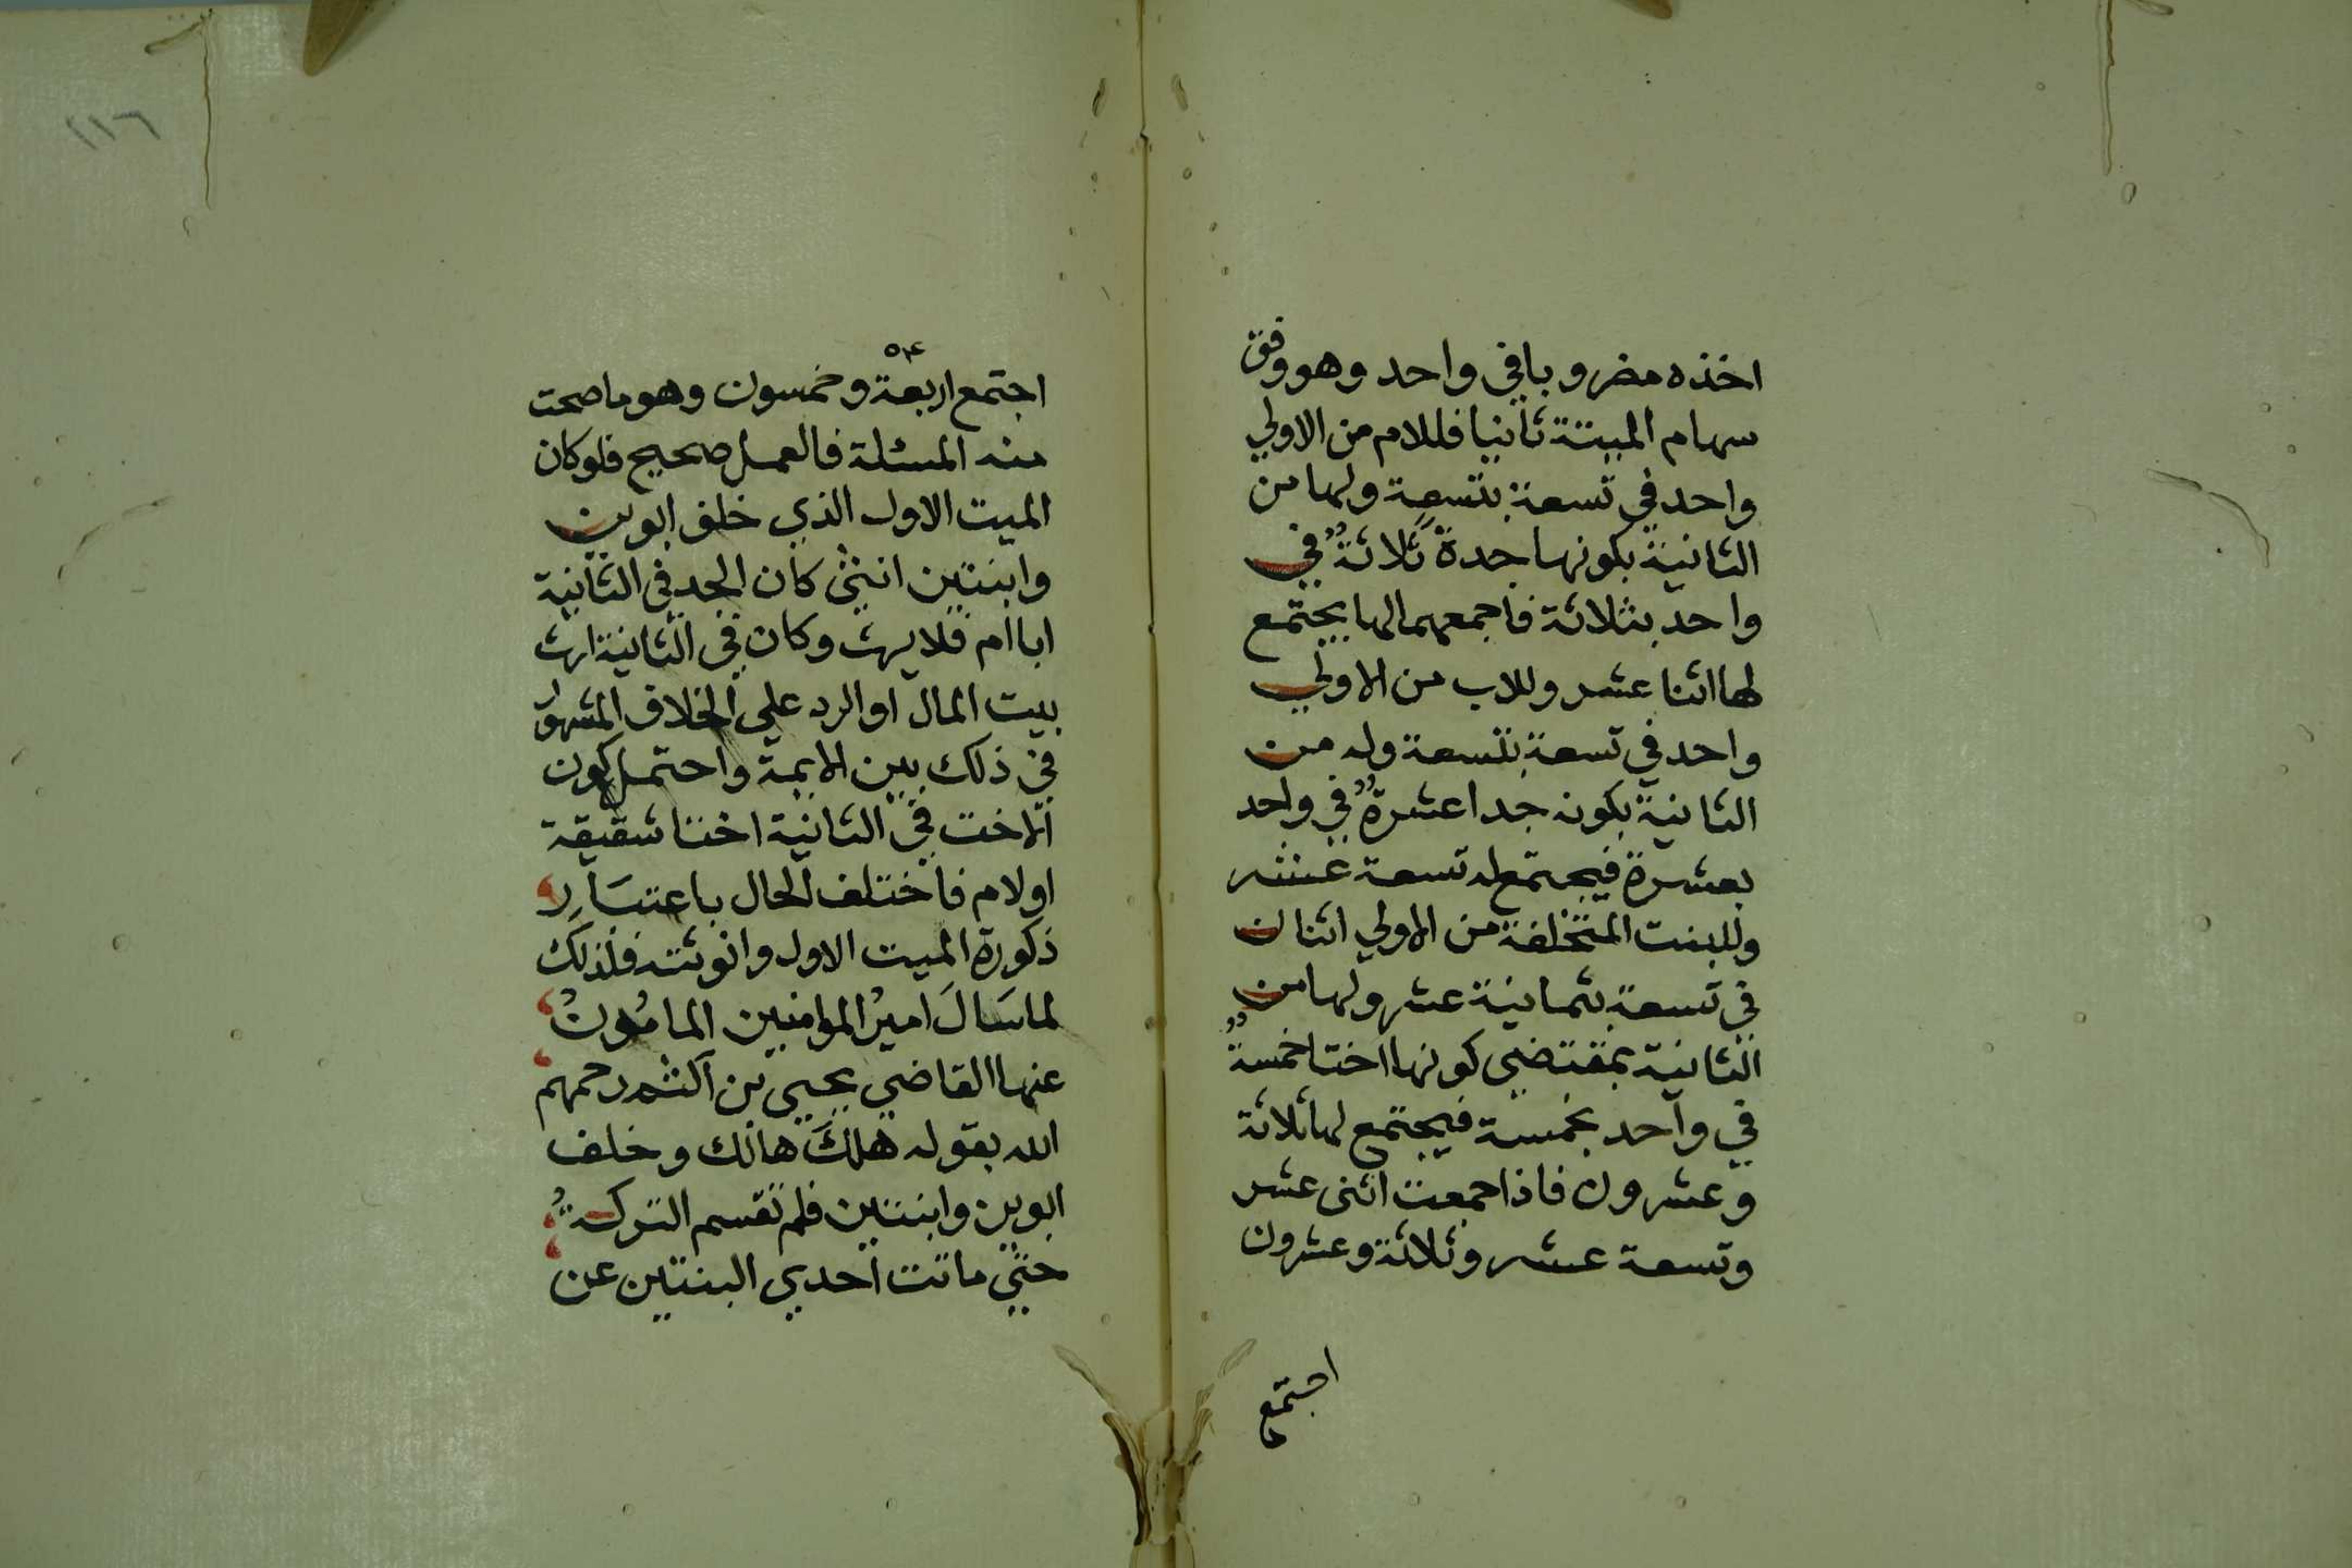 اخذه مضروبا في واحد وهو وفق
سهام الميتة ثانيا فللام من الاولي
واحد في تسعة بتسعة ولها من
الثانية بكونها جدة ثلاثة في
واحد بثلاثة فاجمعهما لها يجتمع
لها اثنا عشر وللاب من الاولي
واحد في تسعة بتسعة وله من
الثانية بكونه جدا عشرة في واحد
بعشرة فيجتمع له تسعة عشر
وللبنت المتخلفة من الاولي اثنان
في تسعة بثمانية عشر ولها من
الثانية بمقتضي كونها اختا خمسة
في واحد بخمسة فيجتمع لها ثلاثة
وعشرون فاذا جمعت اثنى عشر
وتسعة عشر وثلاثة وعشرون
اجتمع
٢١٦
٥٤
اجتمع اربعة وخمسون وهو ما صحت
منه المسئلة فالعمل صحيح فلو كان
الميت الاول الذي خلف ابوين
وابنتين انثى كان الجد في الثانية
ابا ام فلا يرث وكان في الثانية ارث
بيت المال او الرد علي الخلاف المشهور
في ذلك بين الايمة واحتمل كون
الاخت في الثانية اختا شقيقة
او لام فاختلف الحال باعتبار
ذكورة الميت الاول وانوثته فلذلك
لما سَالَ اميرُ الموامنين المامُونُ
عنها القاضي يحيي بن اكثم رحمهم
الله بقوله هلكَ هالك وخلف
ابوين وابنتين فلم تقسم التركةُ
حتي ماتت احدي البنتين عن